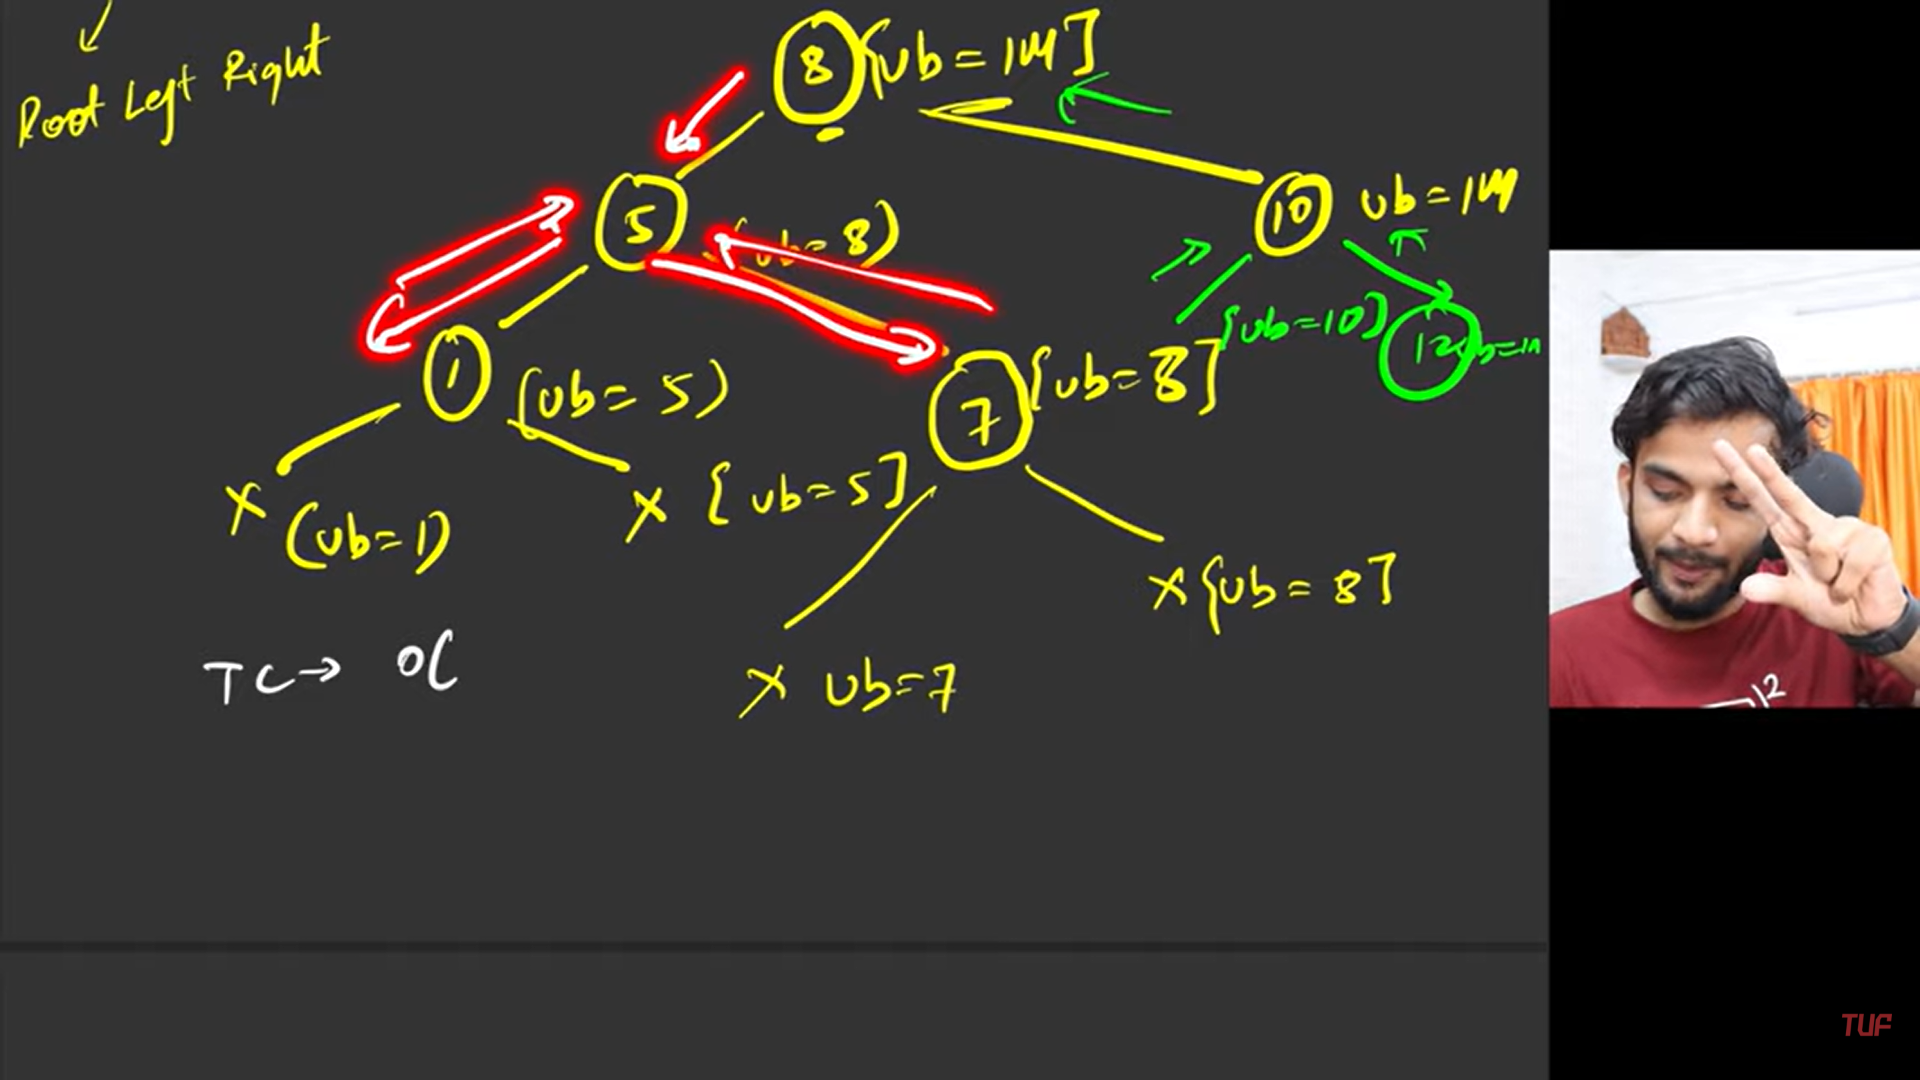 Root Left Right
8 [ub = IM]
5 (ub = 8)
10 ub = IM
1 (ub = 5)
7 [ub = 8]
[ub=10)
12
X (ub= 1)
X [ub = 5]
X [ub = 8]
X ub=7
TC→ O(
12
TUF